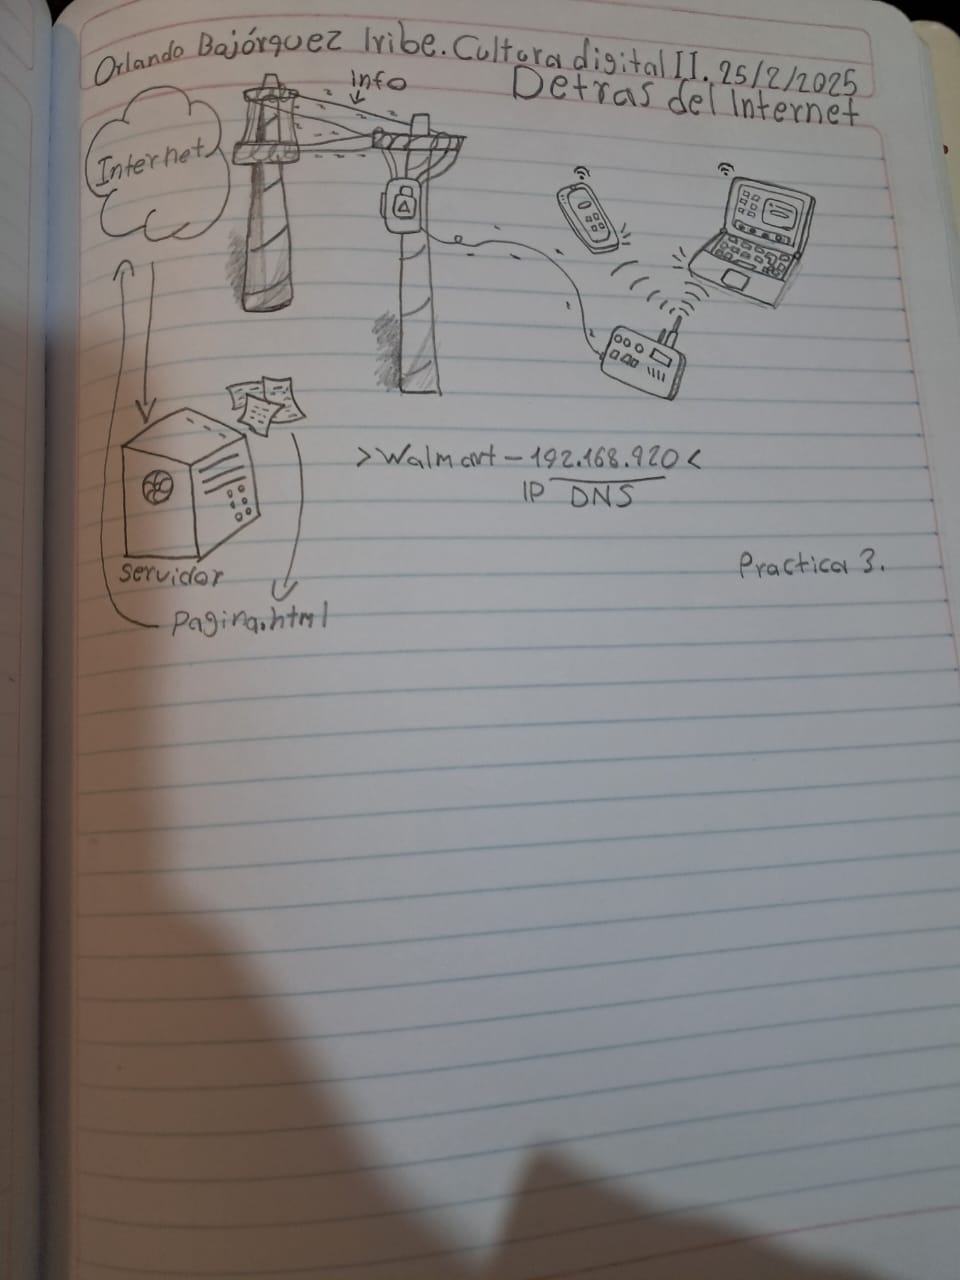 Orlando Bajórquez Iribe. Cultura digital II. 25/2/2025
Detras del Internet
Info
Internet
>Walmart - 192.168.920<
IP DNS
Practica 3.
servidor
Pagina.html